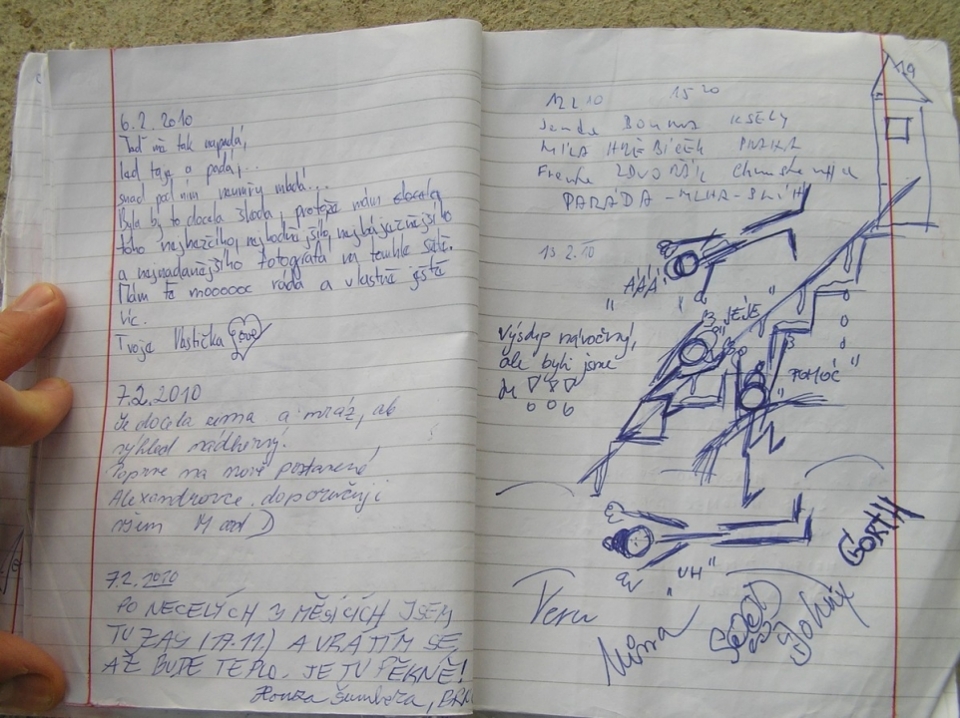 6.2.2010
Teď mě tak napadá,
led taje a padá,...
snad pod ním neumřu mladá...
Byla by to docela škoda, protože mám docela
toho nejhezčího, nejhodnějšího, nejbáječnějšího
a nejnadanějšího fotografa na tomhle světě.
Mám tě moooooc ráda a vlastně ještě
víc.
Tvoje Vlastička Love
7.2.2010
Je docela zima a mráz, ale
výhled nádherný.
Poprvé na nově postavené
Alexandrovce. doporučuji
všem M and D
7.2.2010
PO NECELÝCH 3 MĚSÍCÍCH JSEM
TU ZAS (17.11.) A VRÁTÍM SE,
AŽ BUDE TEPLO. JE TU PĚKNĚ!
Honza Šumbera,
19
12 2 10 15 20
Jenda
MÍLA HŘEBÍČEK
PARÁDA - MLHA - SNÍH
13.2.10
"ÁÁÁ"
"JEJE"
výstup náročný,
ale byli jsme
"POMOC"
"UH"
GORTH
Veru
Johny